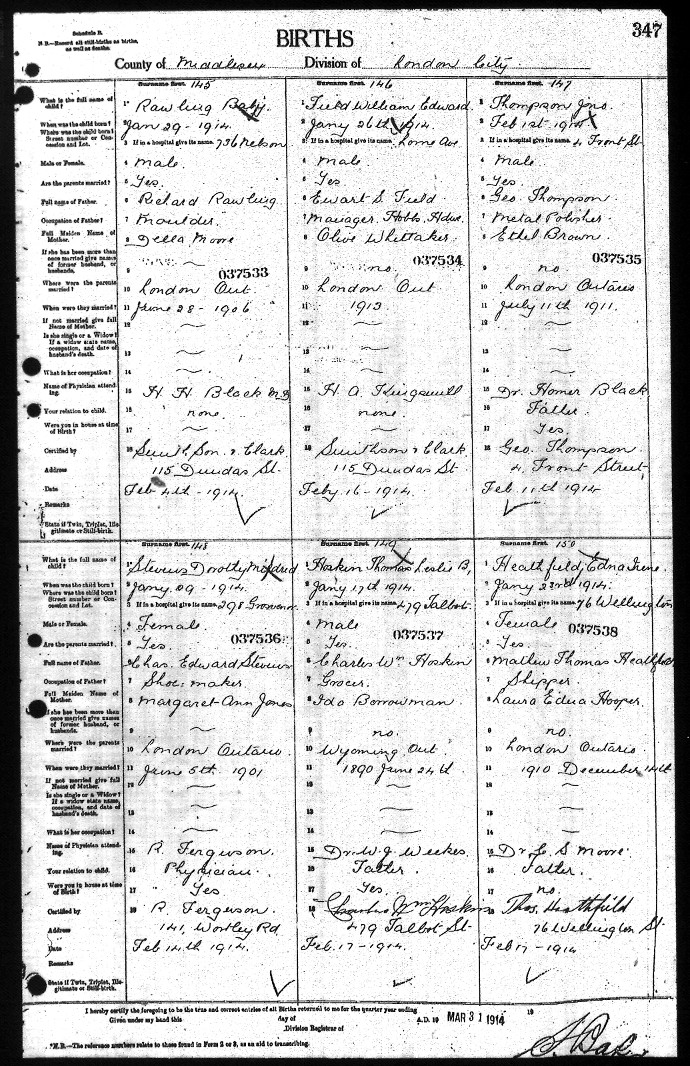 Schedule B.
N B.—Record all still-births as births,
as well as deaths.
347
BIRTHS
County of Middlesex Division of London City
Surname first. 145
Surname first. 146
Surname first. 147
What is the full name of child?
1 Rawling Baby
1 Field William Edward
1 Thompson Jno.
When was the child born?
2 Jany 29 - 1914.
2 Jany 26th 1914.
2 Feb 1st 1914
Where was the child born?
Street number or Concession and Lot.
3 If in a hospital give its name. 736 Nelson
3 If in a hospital give its name. Lorne Ave
3 If in a hospital give its name. 4 Front St
Male or Female.
4 Male.
4 Male
4 Male
Are the parents married?
5 Yes.
5 Yes
5 Yes.
Full name of Father.
6 Richard Rawling
6 Ewart S. Field
6 Geo. Thompson
Occupation of Father?
7 Moulder.
7 Manager Hobbs Hdwe.
7 Metal Polisher
Full Maiden Name of Mother.
8 Della Moore
8 Olive Whittaker
8 Ethel Brown.
If she has been more than once married give names of former husband, or husbands.
9
9 no.
9 no.
037533
037534
037535
Where were the parents married?
10 London Ont
10 London Ont
10 London Ontario
When were they married?
11 June 28 - 1906
11 1913
11 July 11th 1911.
If not married give full Name of Mother.
12
12
12
Is she single or a Widow?
If a widow state name, occupation, and date of husband's death.
13
13
13
What is her occupation?
14
14
14
Name of Physician attending.
15 H. H Black M.B
15 H. A. Kingsmill
15 Dr. Homer Black
Your relation to child.
16 none.
16 none.
16 Father.
Were you in house at time of Birth?
17
17
17 Yes.
Certified by
18 Smith, Son & Clark
18 Smithson & Clark
18 Geo. Thompson
Address
115 Dundas St.
115 Dundas St
4 Front Street
Date
Feb 4th - 1914.
Feby 16 - 1914.
Feb. 11th 1914
Remarks
State if Twin, Triplet, Illegitimate or Still-birth.
Surname first. 148
Surname first. 149
Surname first. 150
What is the full name of child?
1 Stevens Dorothy Mildred
1 Hoskin Thomas Leslie B,
1 Heathfield, Edna Irene.
When was the child born?
2 Jany. 09 - 1914.
2 Jany 17th 1914.
2 Jany 23rd 1914.
Where was the child born?
Street number or Concession and Lot.
3 If in a hospital give its name. 298 Grosvenor
3 If in a hospital give its name. 479 Talbot
3 If in a hospital give its name. 76 Wellington
Male or Female.
4 Female.
4 Male
4 Female
037536
037537
037538
Are the parents married?
5 Yes.
5 Yes.
5 Yes.
Full name of Father.
6 Chas. Edward Stevens
6 Charles Wm Hoskin
6 Mathew Thomas Heathfield
Occupation of Father?
7 Shoe maker.
7 Grocer.
7 Shipper.
Full Maiden Name of Mother.
8 Margaret Ann Jones
8 Ida Borrowman
8 Laura Edna Hooper.
If she has been more than once married give names of former husband, or husbands.
9
9 no.
9 no.
Where were the parents married?
10 London Ontario.
10 Wyoming Ont
10 London Ontario.
When were they married?
11 June 5th 1901
11 1890 June 24th.
11 1910 December 14th
If not married give full Name of Mother.
12
12
12
Is she single or a Widow?
If a widow state name, occupation, and date of husband's death.
13
13
13
What is her occupation?
14
14
14
Name of Physician attending.
15 R. Ferguson.
15 Dr. W. J. Weekes
15 Dr. C. S Moore
Your relation to child.
16 Physician.
16 Father
16 Father.
Were you in house at time of Birth?
17 Yes
17 Yes.
17 no.
Certified by
18 R. Ferguson.
18 Charles Wm Hoskin
18 Thos. Heathfield
Address
141, Wortley Rd
479 Talbot St-
76 Wellington St.
Date
Feb 14th 1914.
Feb. 17 - 1914.
Feb 17 - 1914
Remarks
State if Twin, Triplet, Illegitimate or Still-birth.
I hereby certify the foregoing to be the true and correct entries of all Births returned to me for the quarter year ending 19
Given under my hand this day of A.D. 19 MAR 31 1914
Division Registrar of
*N.B.—The reference numbers relate to those found in Form 2 or 3, as an aid to transcribing.